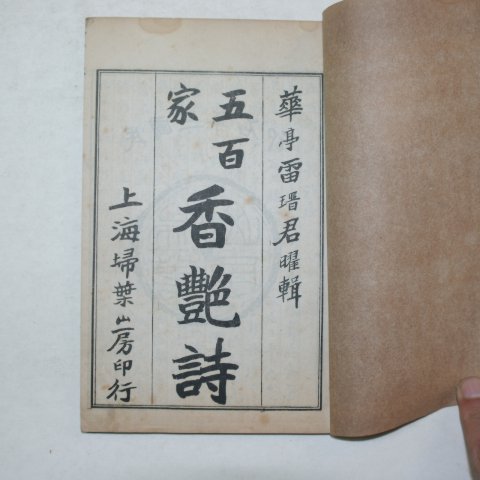 華亭雷瑨君曜輯
五百家
香艷詩
上海埽葉山房印行